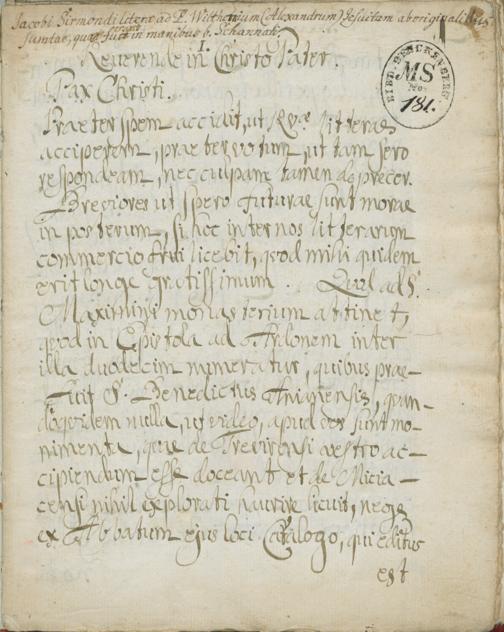 Jacobi Sirmondi literae ad P. Wilthemium (Alexandrum) Jesuitam ab originalibus
sumtae, quae fuerunt in manibus b. Schannati.
BIBL. SENCKENBERG
MS
No.
181.
Reverende in Christo Pater
Pax Christi.
Praeter spem accidit, ut Rvae litteras
acciperem, praeter votum, ut tam sero
respondeam, nec culpam tamen deprecor.
Breviores ut spero futurae sunt morae
in posterium, si hoc inter nos litterarum
commercio frui licebit, quod mihi quidem
erit longe gratissimum. Quod ad S.
Maximini monasterium attinet,
quod in Epistola ad Ardonem inter
illa duodecim numeratur, quibus prae-
ficit S. Benedictus Anianensis, quan-
doquidem nulla, ut video, apud vos sunt mo-
nimenta, quae de Trevirensi vestro ac-
cipiendum esse doceant et de Micia-
censi nihil explorati haurire licuit, neque
ex Abbatum ejus loci Catalogo, qui editus
est